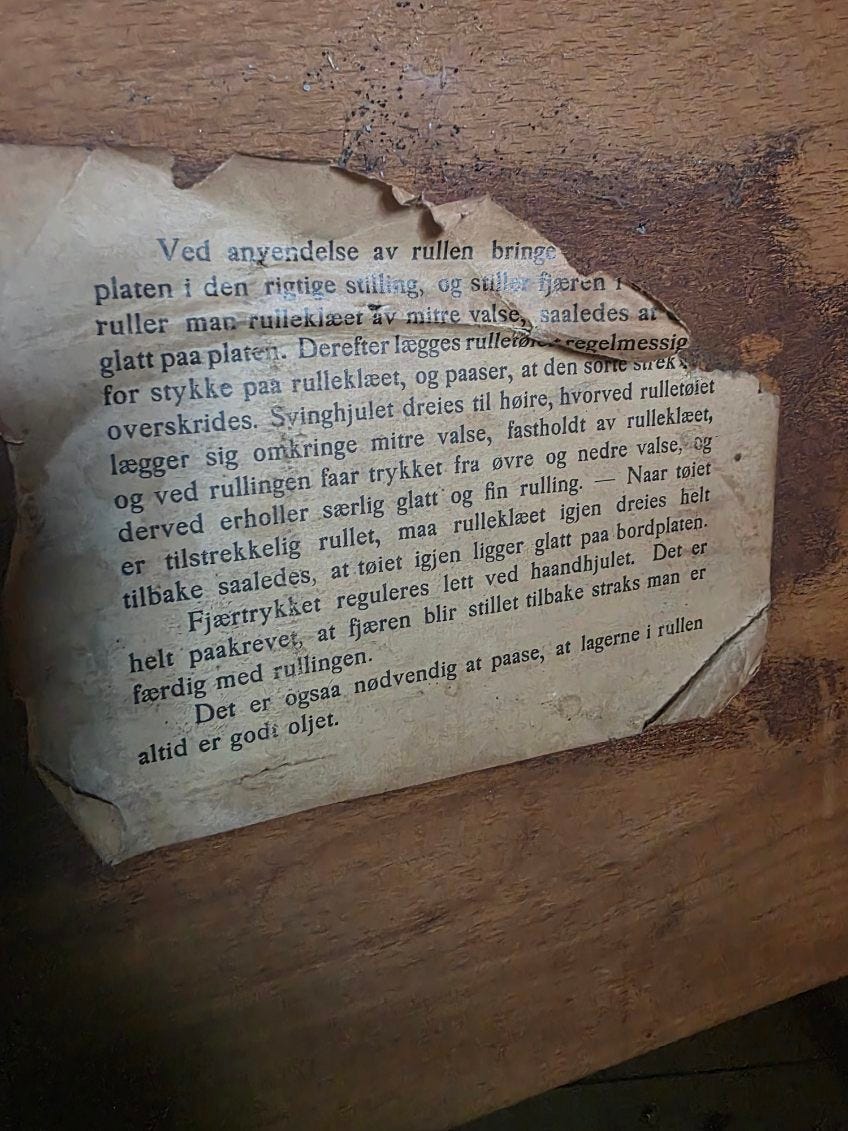 Ved anvendelse av rullen bringe
platen i den rigtige stilling, og stiller fjæren
ruller man rulleklæet av mitre valse, saaledes at
glatt paa platen. Derefter lægges rulletøiet regelmessig
for stykke paa rulleklæet, og paaser, at den sorte strek
overskrides. Svinghjulet dreies til høire, hvorved rulletøiet
lægger sig omkringe mitre valse, fastholdt av rulleklæet,
og ved rullingen faar trykket fra øvre og nedre valse, og
derved erholler særlig glatt og fin rulling. — Naar tøiet
er tilstrekkelig rullet, maa rulleklæet igjen dreies helt
tilbake saaledes, at tøiet igjen ligger glatt paa bordplaten.
Fjærtrykket reguleres lett ved haandhjulet. Det er
helt paakrevet, at fjæren blir stillet tilbake straks man er
færdig med rullingen.
Det er ogsaa nødvendig at paase, at lagerne i rullen
altid er godt oljet.